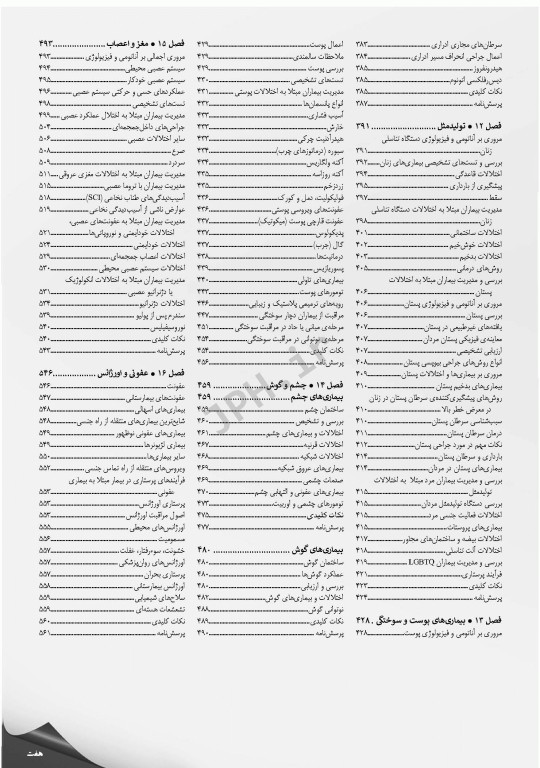 سرطان‌های مجاری ادراری ... ۳۸۳
اعمال جراحی انحراف مسیر ادراری ... ۳۸۴
هیدرونفروز ... ۳۸۵
دیس‌رفلکسی اتونوم ... ۳۸۵
نکات کلیدی ... ۳۸۵
پرسش‌نامه ... ۳۸۷
فصل ۱۲ • تولیدمثل ... ۳۹۱
مروری بر آناتومی و فیزیولوژی دستگاه تناسلی
زنان ... ۳۹۱
بررسی و تست‌های تشخیصی بیماری‌های زنان ... ۳۹۲
اختلالات قاعدگی ... ۳۹۴
پیشگیری از بارداری ... ۳۹۵
سقط ... ۳۹۷
مدیریت بیماران مبتلا به اختلالات دستگاه تناسلی
زنان ... ۳۹۸
اختلالات ساختمانی ... ۴۰۱
اختلالات خوش‌خیم ... ۴۰۲
اختلالات بدخیم ... ۴۰۳
روش‌های درمانی ... ۴۰۵
بررسی و مدیریت بیماران مبتلا به اختلالات
پستان ... ۴۰۶
مروری بر آناتومی و فیزیولوژی پستان ... ۴۰۶
بررسی پستان ... ۴۰۶
یافته‌های غیرطبیعی در پستان ... ۴۰۷
معاینه‌ی فیزیکی پستان مردان ... ۴۰۷
ارزیابی تشخیصی ... ۴۰۷
انواع روش‌های جراحی بیوپسی پستان ... ۴۰۸
مروری بر بیماری‌ها و اختلالات پستان ... ۴۰۹
بیماری‌های بدخیم پستان ... ۴۱۰
روش‌های پیشگیری‌کننده‌ی سرطان پستان در زنان
در معرض خطر بالا ... ۴۱۰
سبب‌شناسی سرطان پستان ... ۴۱۰
درمان سرطان پستان ... ۴۱۱
نکات مهم در مورد جراحی پستان ... ۴۱۲
بارداری و سرطان پستان ... ۴۱۴
بیماری‌های پستان در مردان ... ۴۱۴
بررسی و مدیریت بیماران مرد مبتلا به اختلالات
تولیدمثل ... ۴۱۵
بررسی دستگاه تولیدمثل مردان ... ۴۱۵
اختلالات فعالیت جنسی مرد ... ۴۱۵
بیماری‌های پروستات ... ۴۱۵
اختلالات بیضه و ساختمان‌های مجاور ... ۴۱۷
اختلالات آلت تناسلی ... ۴۱۸
بررسی و مدیریت بیماران LGBTQ ... ۴۱۹
فرآیند پرستاری ... ۴۲۱
نکات کلیدی ... ۴۲۳
پرسش‌نامه ... ۴۲۴
فصل ۱۳ • بیماری‌های پوست و سوختگی . ۴۲۸
مروری بر آناتومی و فیزیولوژی پوست ... ۴۲۸
اعمال پوست ... ۴۲۹
ملاحظات سالمندی ... ۴۲۹
بررسی پوست ... ۴۲۹
تست‌های تشخیصی ... ۴۳۰
مدیریت بیماران مبتلا به اختلالات پوستی ... ۴۳۱
انواع پانسمان‌ها ... ۴۳۲
آسیب فشاری ... ۴۳۳
خارش ... ۴۳۳
هیدرآدنیت چرکی ... ۴۳۳
سبوره (درماتوزهای چرب) ... ۴۳۴
آکنه ولگاریس ... ۴۳۴
آکنه روزاسه ... ۴۳۵
زردزخم ... ۴۳۵
فولیکولیت، دمل و کورک ... ۴۳۶
عفونت‌های ویروسی پوستی ... ۴۳۶
عفونت قارچی پوست (میکوتیک) ... ۴۳۷
پدیکولوس ... ۴۳۷
گال (جرب) ... ۴۳۷
درماتیت‌ها ... ۴۳۸
پسوریازیس ... ۴۳۹
بیماری‌های تاولی ... ۴۴۰
تومورهای پوست ... ۴۴۳
رویه‌های ترمیمی پلاستیک و زیبایی ... ۴۴۶
مراقبت از بیماران دچار سوختگی ... ۴۴۷
مرحله‌ی میانی یا حاد در مراقبت سوختگی ... ۴۵۱
مرحله‌ی نوتوانی در مراقبت سوختگی ... ۴۵۴
نکات کلیدی ... ۴۵۴
پرسش‌نامه ... ۴۵۶
فصل ۱۴ • چشم و گوش ... ۴۵۹
بیماری‌های چشم ... ۴۵۹
ساختمان چشم ... ۴۵۹
بررسی و تشخیص ... ۴۶۰
اختلالات و بیماری‌های چشم ... ۴۶۱
اختلالات قرنیه ... ۴۶۷
اختلالات شبکیه ... ۴۶۸
بیماری‌های عروق شبکیه ... ۴۶۹
صدمات چشمی ... ۴۶۹
بیماری‌های عفونی و التهابی چشم ... ۴۷۰
تومورهای چشمی و اوربیت ... ۴۷۳
نکات کلیدی ... ۴۷۵
پرسش‌نامه ... ۴۷۷
بیماری‌های گوش ... ۴۸۰
ساختمان گوش ... ۴۸۰
عملکرد گوش‌ها ... ۴۸۰
بررسی و ارزیابی ... ۴۸۰
اختلالات و بیماری‌های گوش ... ۴۸۲
نوتوانی گوش ... ۴۸۸
نکات کلیدی ... ۴۸۹
پرسش‌نامه ... ۴۹۰
فصل ۱۵ • مغز و اعصاب ... ۴۹۳
مروری اجمالی بر آناتومی و فیزیولوژی ... ۴۹۳
سیستم عصبی محیطی ... ۴۹۴
سیستم عصبی خودکار ... ۴۹۵
عملکردهای حسی و حرکتی سیستم عصبی ... ۴۹۶
تست‌های تشخیصی ... ۴۹۸
مدیریت بیماران مبتلا به اختلال عملکرد عصبی ... ۴۹۹
جراحی‌های داخل‌جمجمه‌ای ... ۵۰۴
سایر اختلالات عصبی ... ۵۰۶
صرع ... ۵۰۸
سردرد ... ۵۰۹
مدیریت بیماران مبتلا به اختلالات مغزی عروقی ... ۵۱۱
مدیریت بیماران با تروما عصبی ... ۵۱۵
آسیب‌دیدگی‌های طناب نخاعی (SCI) ... ۵۱۸
عوارض ناشی از آسیب‌دیدگی نخاعی ... ۵۱۹
مدیریت بیماران مبتلا به عفونت‌های عصبی،
اختلالات خودایمنی و نوروپاتی‌ها ... ۵۲۱
اختلالات خودایمنی ... ۵۲۴
اختلالات اعصاب جمجمه‌ای ... ۵۲۹
اختلالات سیستم عصبی محیطی ... ۵۳۰
مدیریت بیماران مبتلا به اختلالات انکولوژیک
یا دژنراتیو عصبی ... ۵۳۱
اختلالات دژنراتیو ... ۵۳۴
سندرم پس از پولیو ... ۵۳۹
نوروسیفیلیس ... ۵۴۰
نکات کلیدی ... ۵۴۰
پرسش‌نامه ... ۵۴۳
فصل ۱۶ • عفونی و اورژانس ... ۵۴۶
عفونت ... ۵۴۶
عفونت‌های بیمارستانی ... ۵۴۷
بیماری‌های اسهالی ... ۵۴۸
شایع‌ترین بیماری‌های منتقله از راه جنسی ... ۵۴۸
بیماری‌های عفونی نوظهور ... ۵۴۹
بیماری لژیونرها ... ۵۴۹
سایر بیماری‌ها ... ۵۵۰
ویروس‌های منتقله از راه تماس جنسی ... ۵۵۲
فرآیندهای پرستاری در بیمار مبتلا به بیماری
عفونی ... ۵۵۳
پرستاری اورژانس ... ۵۵۳
اصول مراقبت اورژانس ... ۵۵۳
اورژانس‌های محیطی ... ۵۵۵
مسمومیت ... ۵۵۶
خشونت، سوءرفتار، غفلت ... ۵۵۷
اورژانس‌های روان‌پزشکی ... ۵۵۷
پرستاری بحران ... ۵۵۷
اورژانس بیمارستانی ... ۵۵۸
سلاح‌های شیمیایی ... ۵۵۹
تشعشعات هسته‌ای ... ۵۵۹
نکات کلیدی ... ۵۶۰
پرسش‌نامه ... ۵۶۱
JPH.ir
هفت